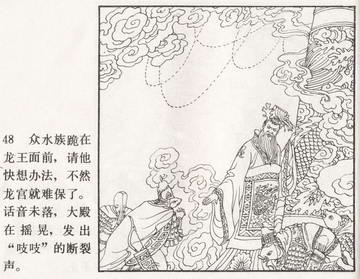 48 众水族跪在
龙王面前，请他
快想办法，不然
龙宫就难保了。
话音未落，大殿
在摇晃，发出
“吱吱”的断裂
声。